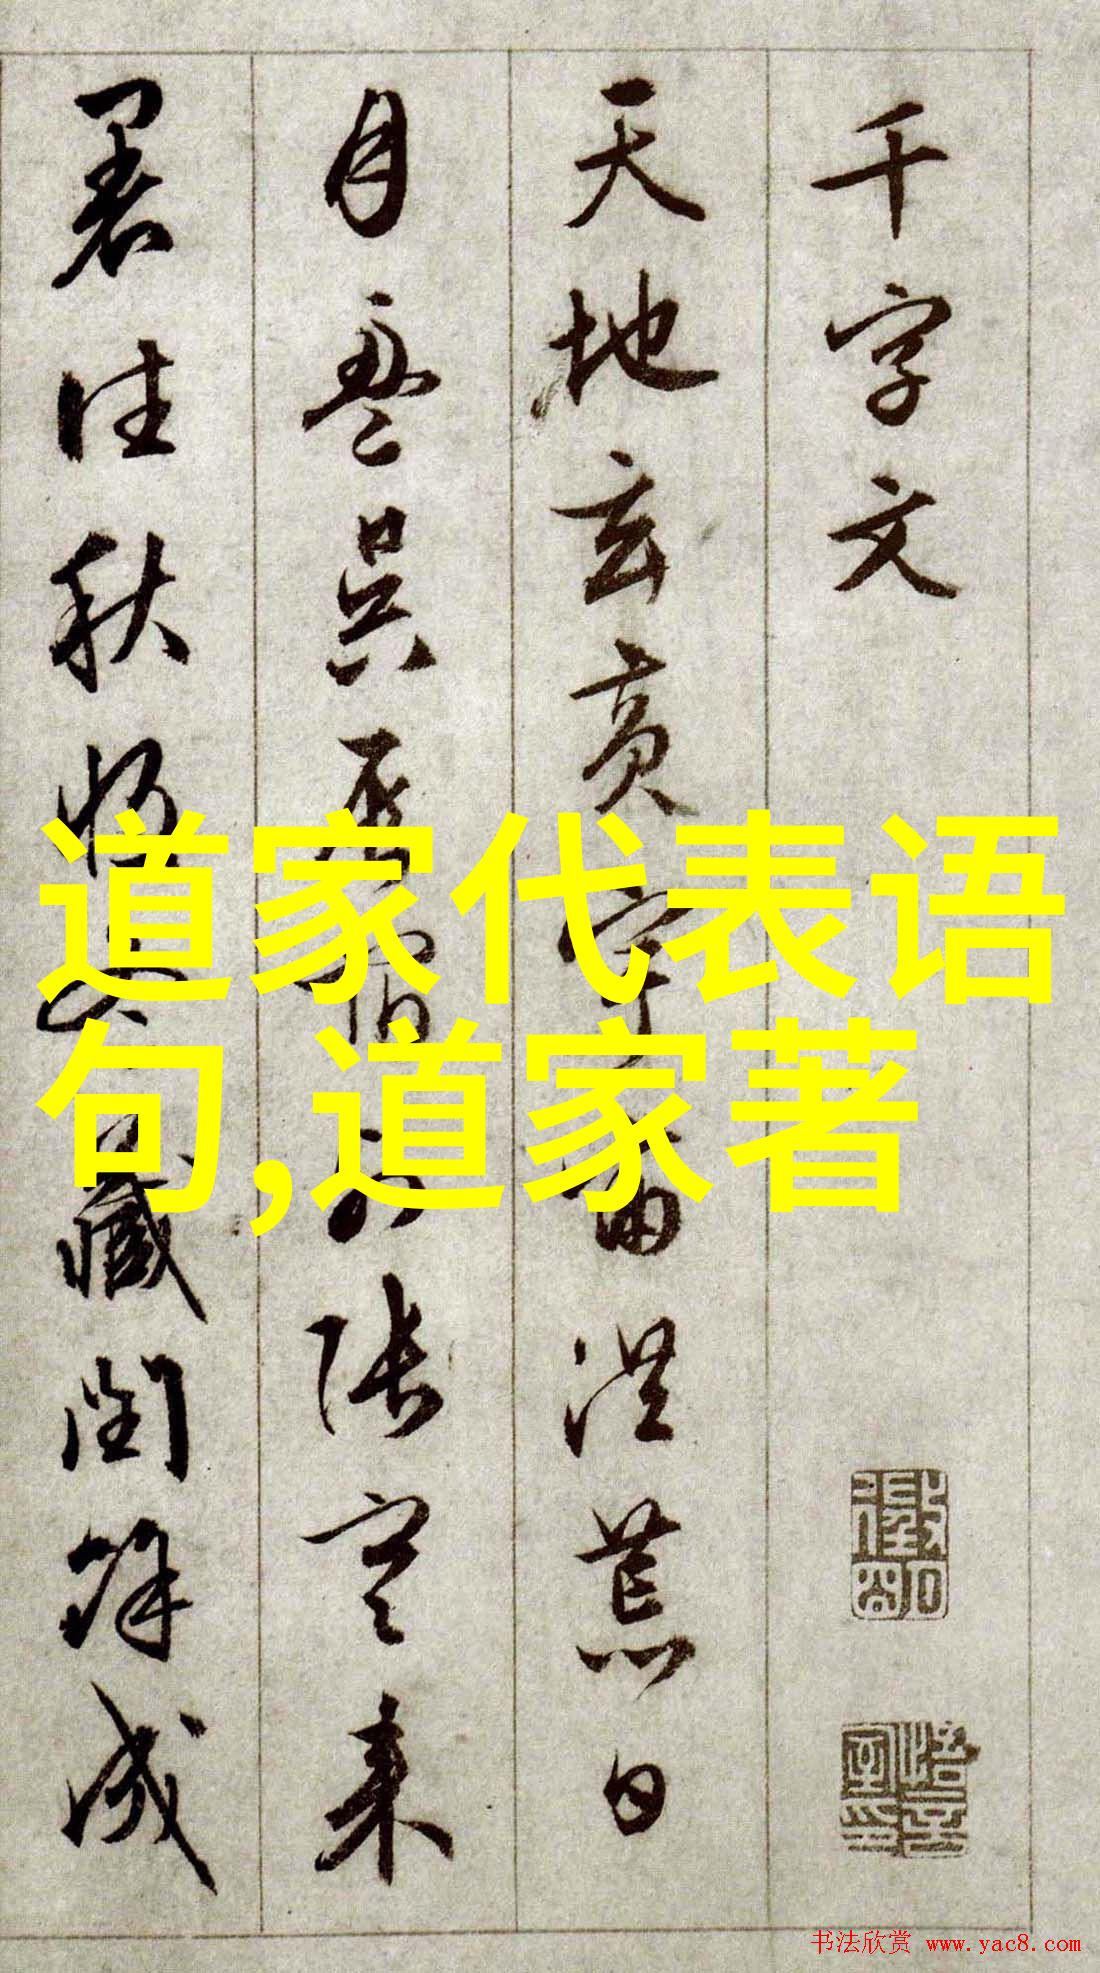 千字文
天地玄黄宇宙洪荒日
月盈昃辰宿列張寒来
暑往秋收冬藏閏餘成
道家代表语
句,道家著
书法欣赏 www.yac8.com